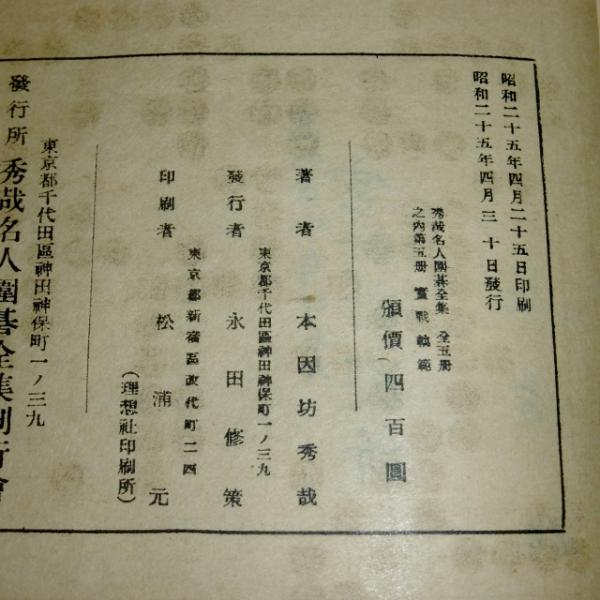 昭和二十五年四月二十五日印刷
昭和二十五年四月三十日發行
秀哉名人圍碁全集 全五册
之内第五册 實戰軌範
頒價四百圓
著者 本因坊秀哉
東京都千代田區神田神保町一ノ三九
發行者 永田修策
東京都新宿區改代町二四
印刷者 松浦元
(理想社印刷所)
東京都千代田區神田神保町一ノ三九
發行所 秀哉名人圍碁全集刊行會